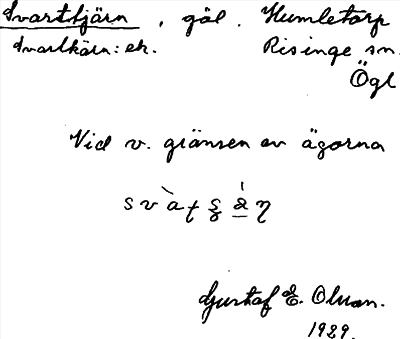 Svarttjärn, göl. Humletorp
Svartkärn: ek. Risinge sn.
Ögl
Vid v. gränsen av ägorna
Gustaf E. Olsson.
1929.